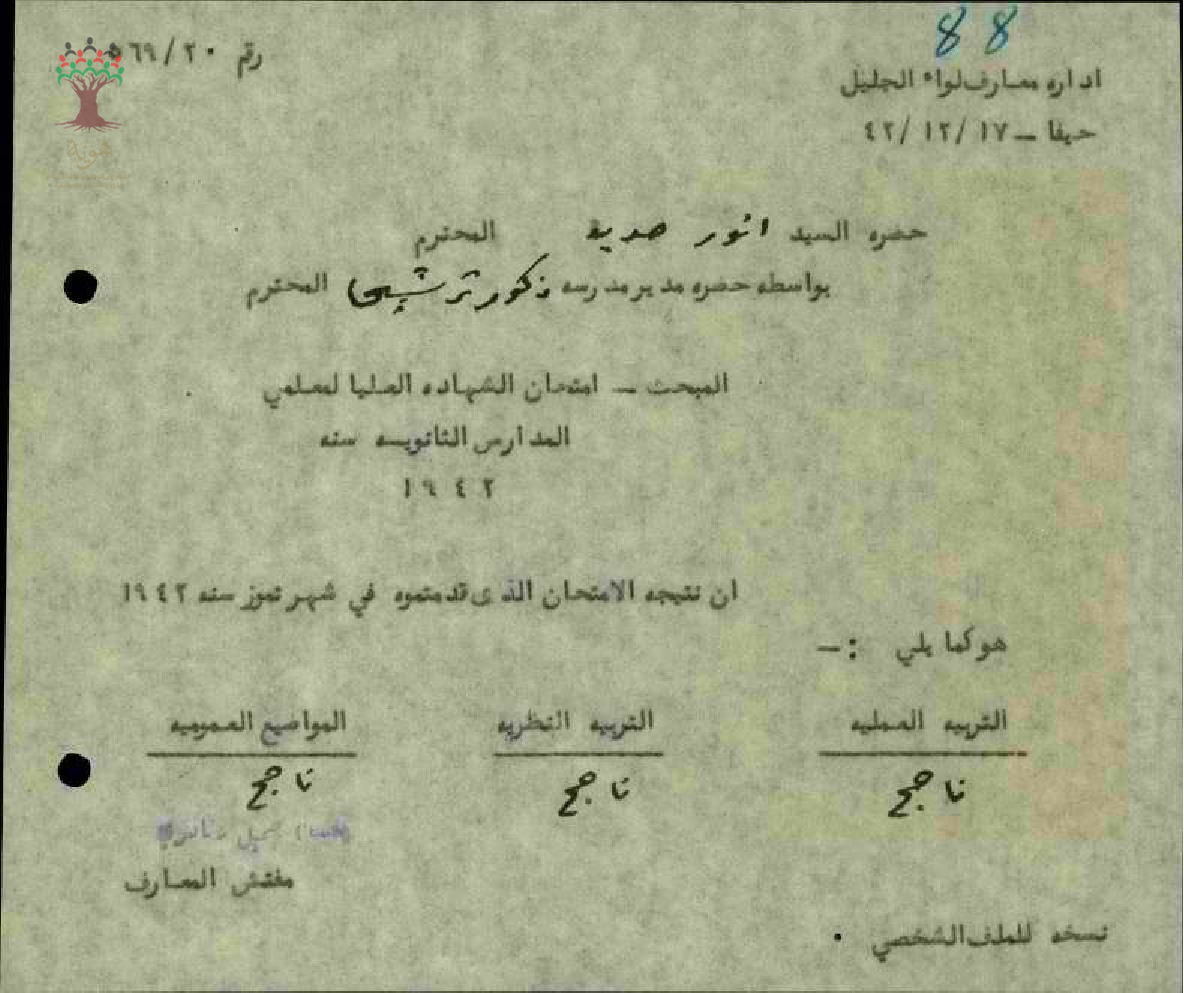 88
رقم ٥٦٩/٢٠
اداره معارف لواء الجليل
حيفا – ١٧/ ١٢/ ٤٢
هوية
حضره السيد انور حديد المحترم
بواسطه حضره مدير مدرسه ذكور ترشيحا المحترم
المبحث – امتحان الشهاده العليا لمعلمي
المدارس الثانويه سنه
١٩٤٢
ان نتيجه الامتحان الذى قدمتموه في شهر تموز سنه ١٩٤٢
هو كما يلي :–
التربيه العمليه التربيه النظريه المواضيع العموميه
ناجح ناجح ناجح
جميل
مفتش المعارف
نسخه للملف الشخصي .